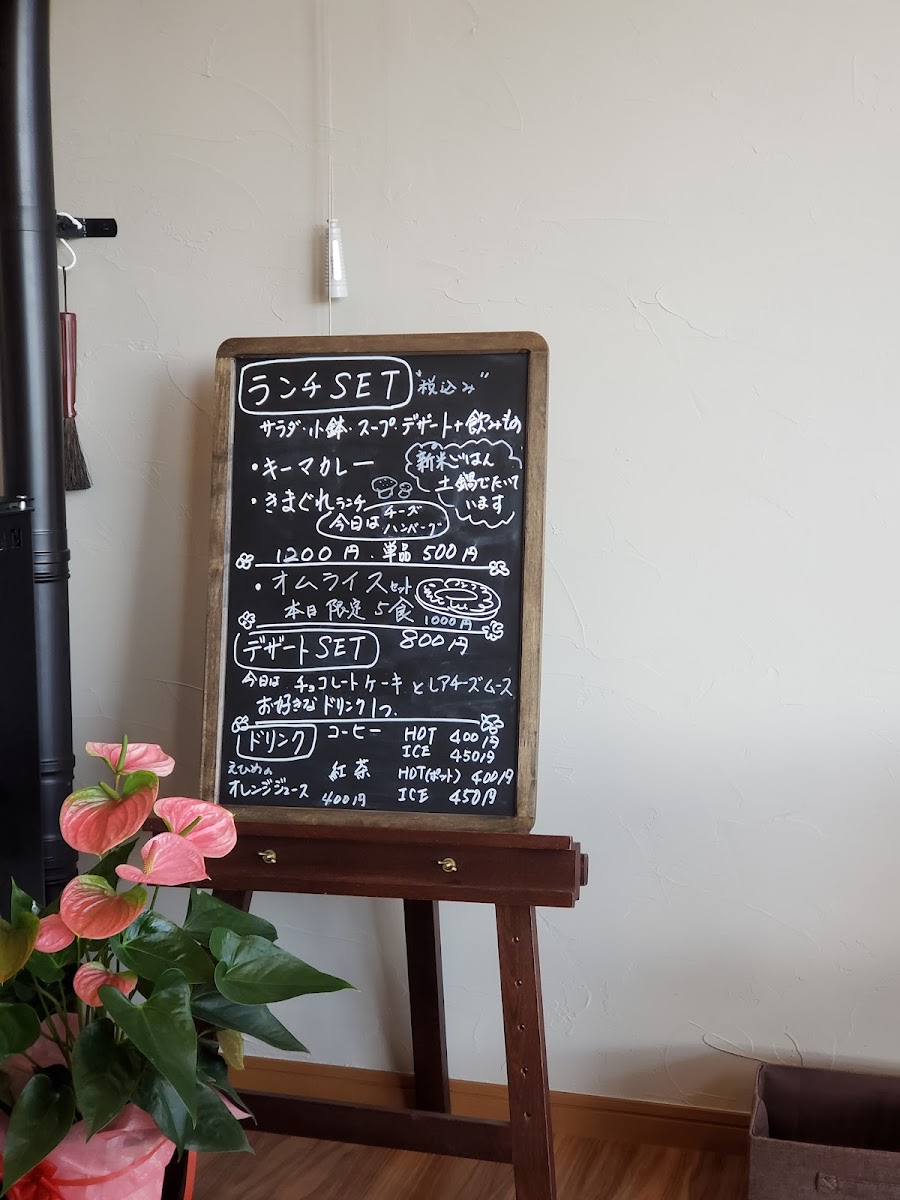 ランチSET "税込み"
サラダ・小鉢・スープ・デザート+飲みもの
・キーマカレー
新米ごはん
土鍋でたいて
います
・きまぐれランチ
今日は チーズ
ハンバーグ
1200円・単品500円
・オムライスセット
本日限定5食 1000円
デザートSET 800円
今日は チョコレートケーキ とレアチーズムース
お好きなドリンク1つ
ドリンク コーヒー HOT 400円
ICE 450円
えひめの
オレンジジュース 400円
紅茶 HOT(ポット) 400円
ICE 450円